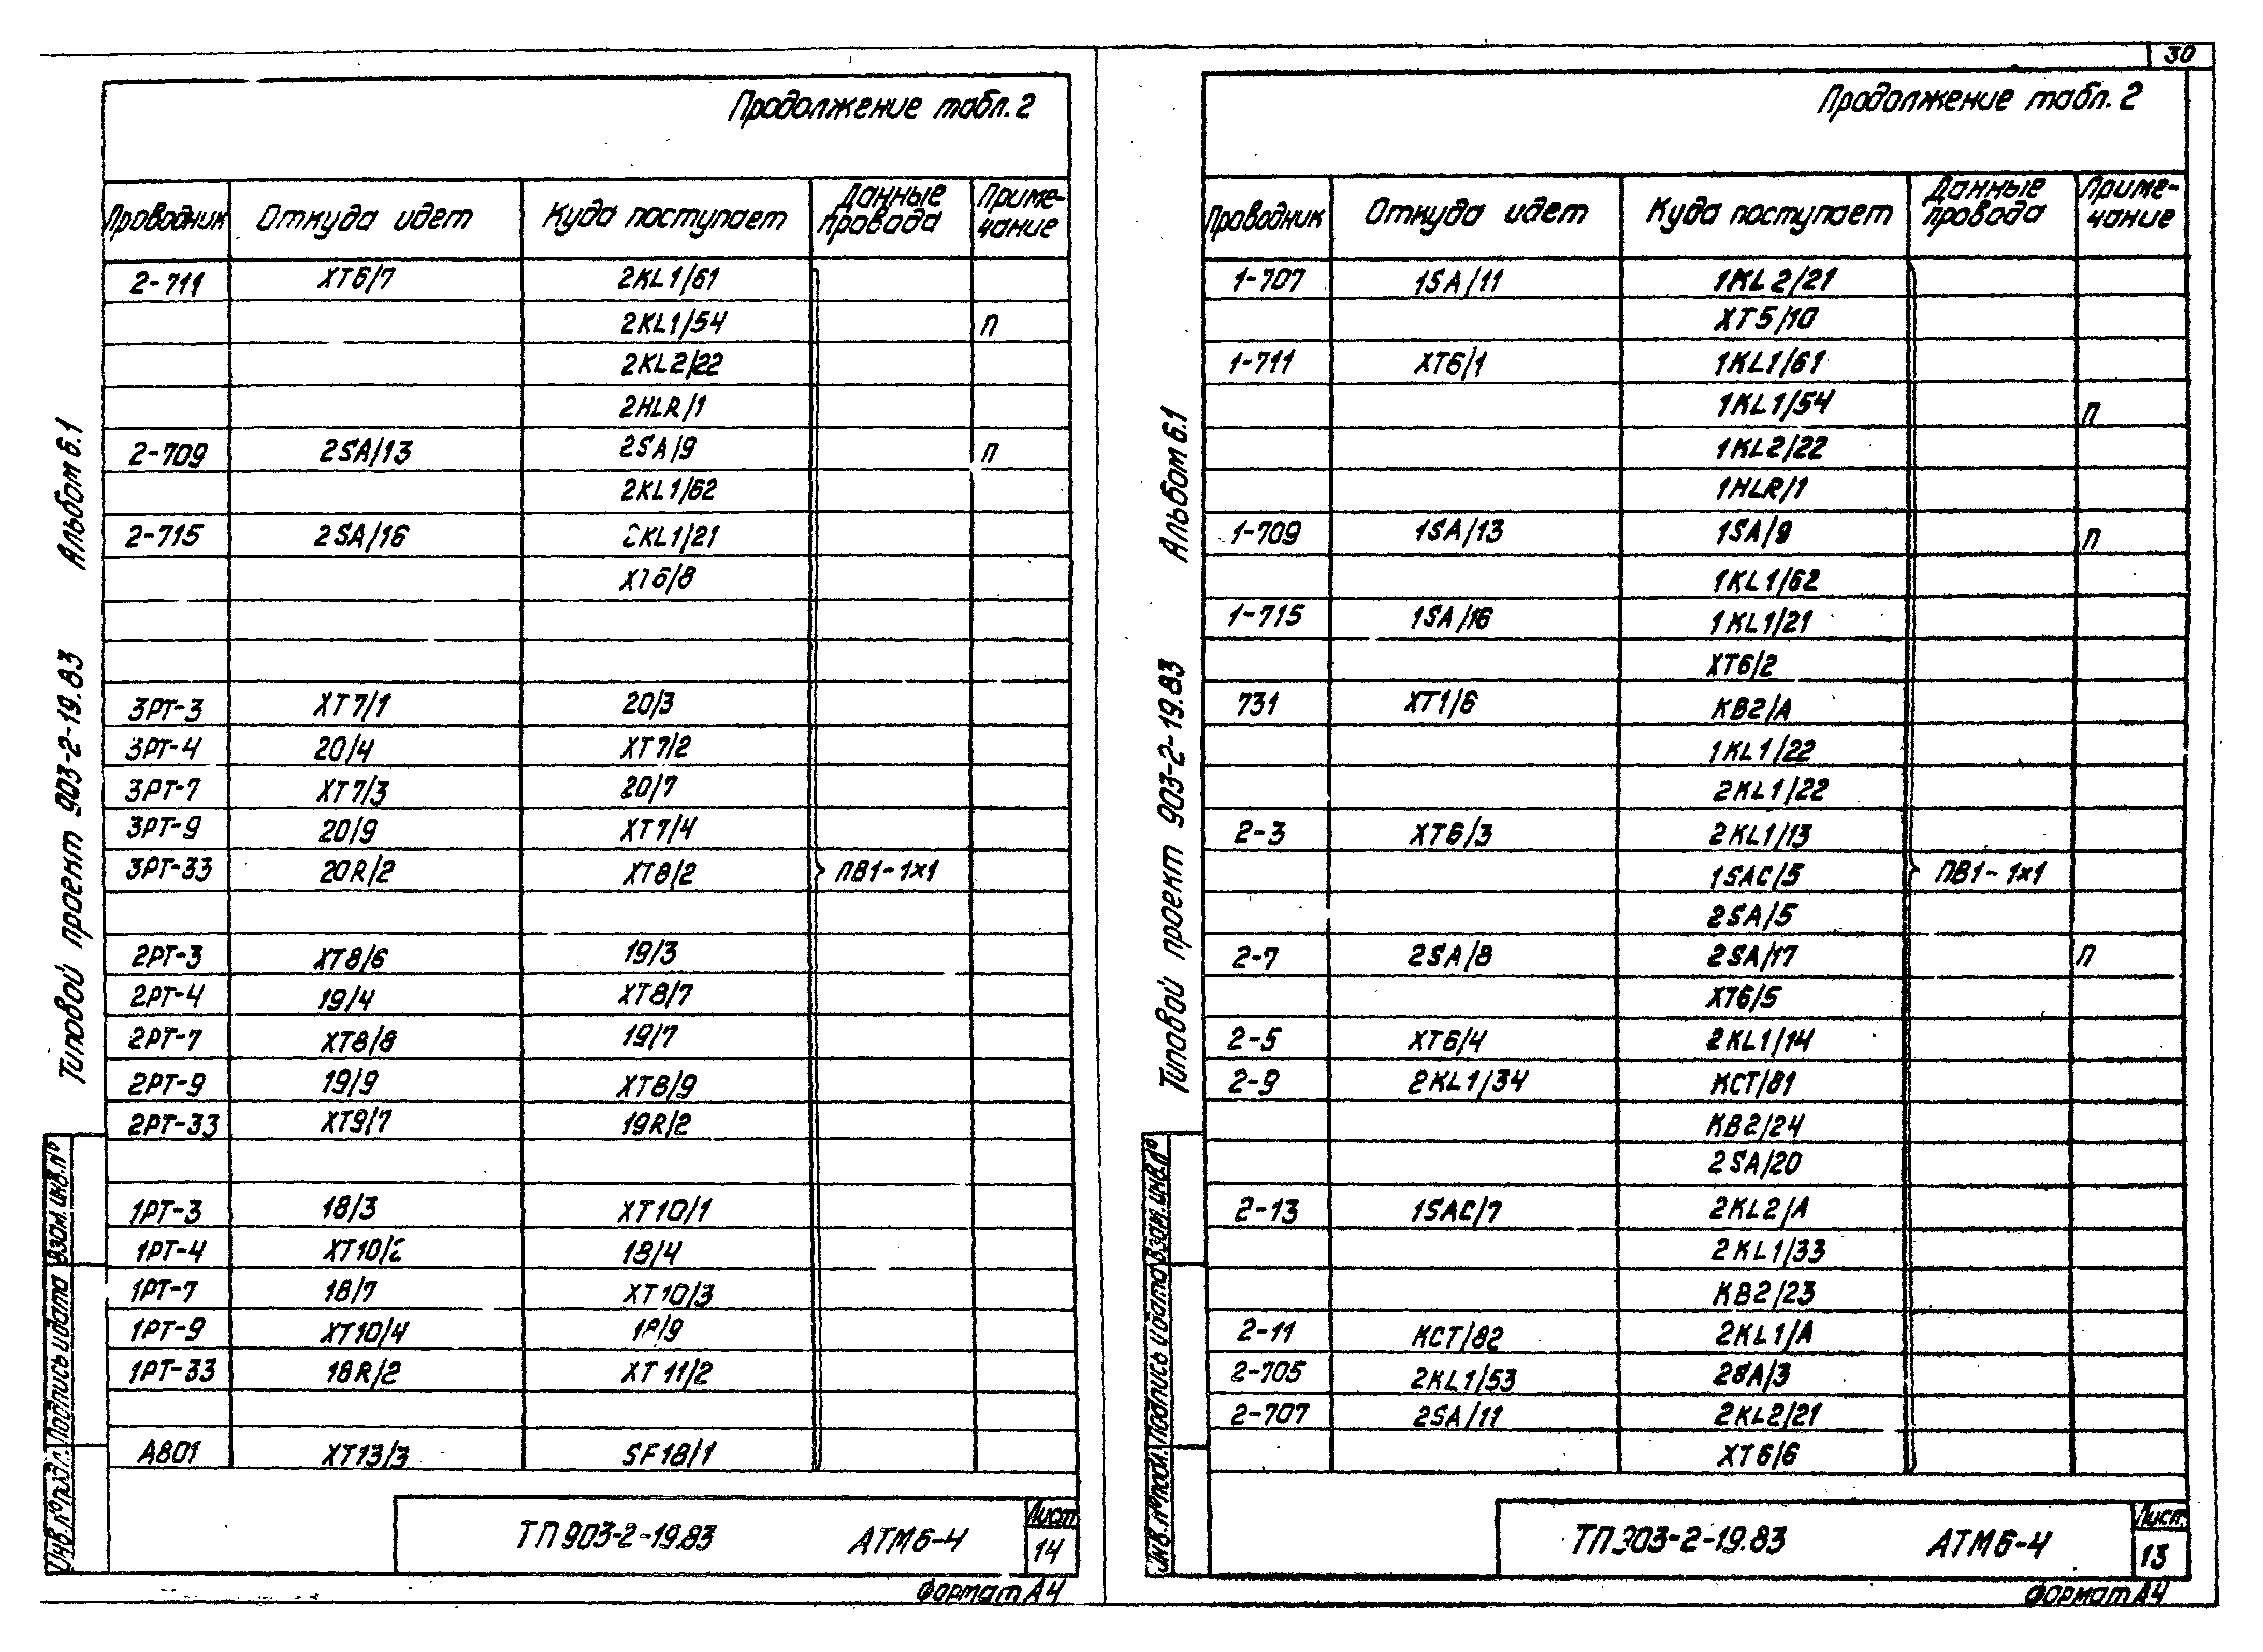 30
Продолжение табл. 2
Проводник Откуда идет Куда поступает Данные провода Приме-чание
2-711 XT6/7 2KL1/61
2KL1/54 П
2KL2/22
2HLR/1
2-709 2SA/13 2SA/9 П
2KL1/62
2-715 2SA/16 KL1/21
XT6/8
3РТ-3 XT7/1 20/3
3РТ-4 20/4 XT7/2
3РТ-7 XT7/3 20/7
3РТ-9 20/9 XT7/4
3РТ-33 20R/2 XT8/2 ПВ1-1х1
2РТ-3 XT8/6 19/3
2РТ-4 19/4 XT8/7
2РТ-7 XT8/8 19/7
2РТ-9 19/9 XT8/9
2РТ-33 XT9/7 19R/2
1РТ-3 18/3 XT10/1
1РТ-4 XT10/2 18/4
1РТ-7 18/7 XT10/3
1РТ-9 XT10/4 18/9
1РТ-33 18R/2 XT11/2
А801 XT13/3 SF18/1
Альбом 6.1
Типовой проект 903-2-19.83
Взам. инв. №
Подпись и дата
Инв. № подл.
ТП 903-2-19.83 АТМ6-4
Лист
14
Формат А4
Продолжение табл. 2
Проводник Откуда идет Куда поступает Данные провода Приме-чание
1-707 1SA/11 1KL2/21
XT5/10
1-711 XT6/1 1KL1/61
1KL1/54 П
1KL2/22
1HLR/1
1-709 1SA/13 1SA/9 П
1KL1/62
1-715 1SA/16 1KL1/21
XT6/2
731 XT1/6 KB2/A
1KL1/22
2KL1/22
2-3 XT6/3 2KL1/13
1SAC/5 ПВ1-1х1
2SA/5
2-7 2SA/8 2SA/17 П
XT6/5
2-5 XT6/4 2KL1/14
2-9 2KL1/34 KCT/81
KB2/24
2SA/20
2-13 1SAC/7 2KL2/A
2KL1/33
KB2/23
2-11 KCT/82 2KL1/A
2-705 2KL1/53 2SA/3
2-707 2SA/11 2KL2/21
XT6/6
Альбом 6.1
Типовой проект 903-2-19.83
Взам. инв. №
Подпись и дата
Инв. № подл.
ТП 903-2-19.83 АТМ6-4
Лист
13
Формат А4